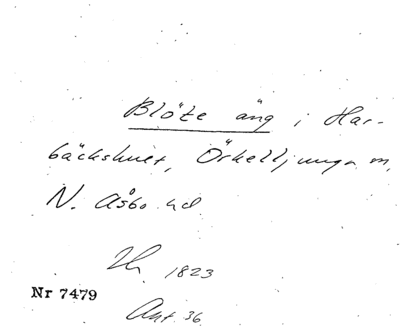 Blöte äng i Har-
bäckshult, Örkelljunga sn,
N. Åsbo hd.
1823
Nr 7479
Akt 36